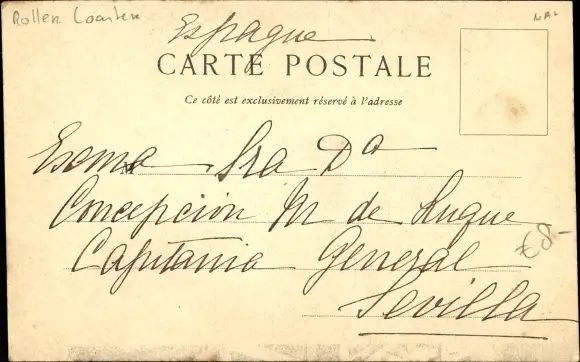 Roller Coaster
Espagne
CARTE POSTALE
Ce côté est exclusivement réservé à l'adresse
Excma Sra Dª
Concepción M de Luque
Capitania General
Sevilla
€8-